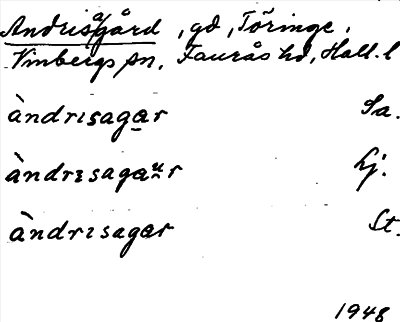 Andrisågård, gd, Töringe,
Vinbergs sn, Faurås hd, Hall. l
àndrɪsagar Sa.
àndrɪsagaʀr Lj.
àndrɪsagar St.
1948